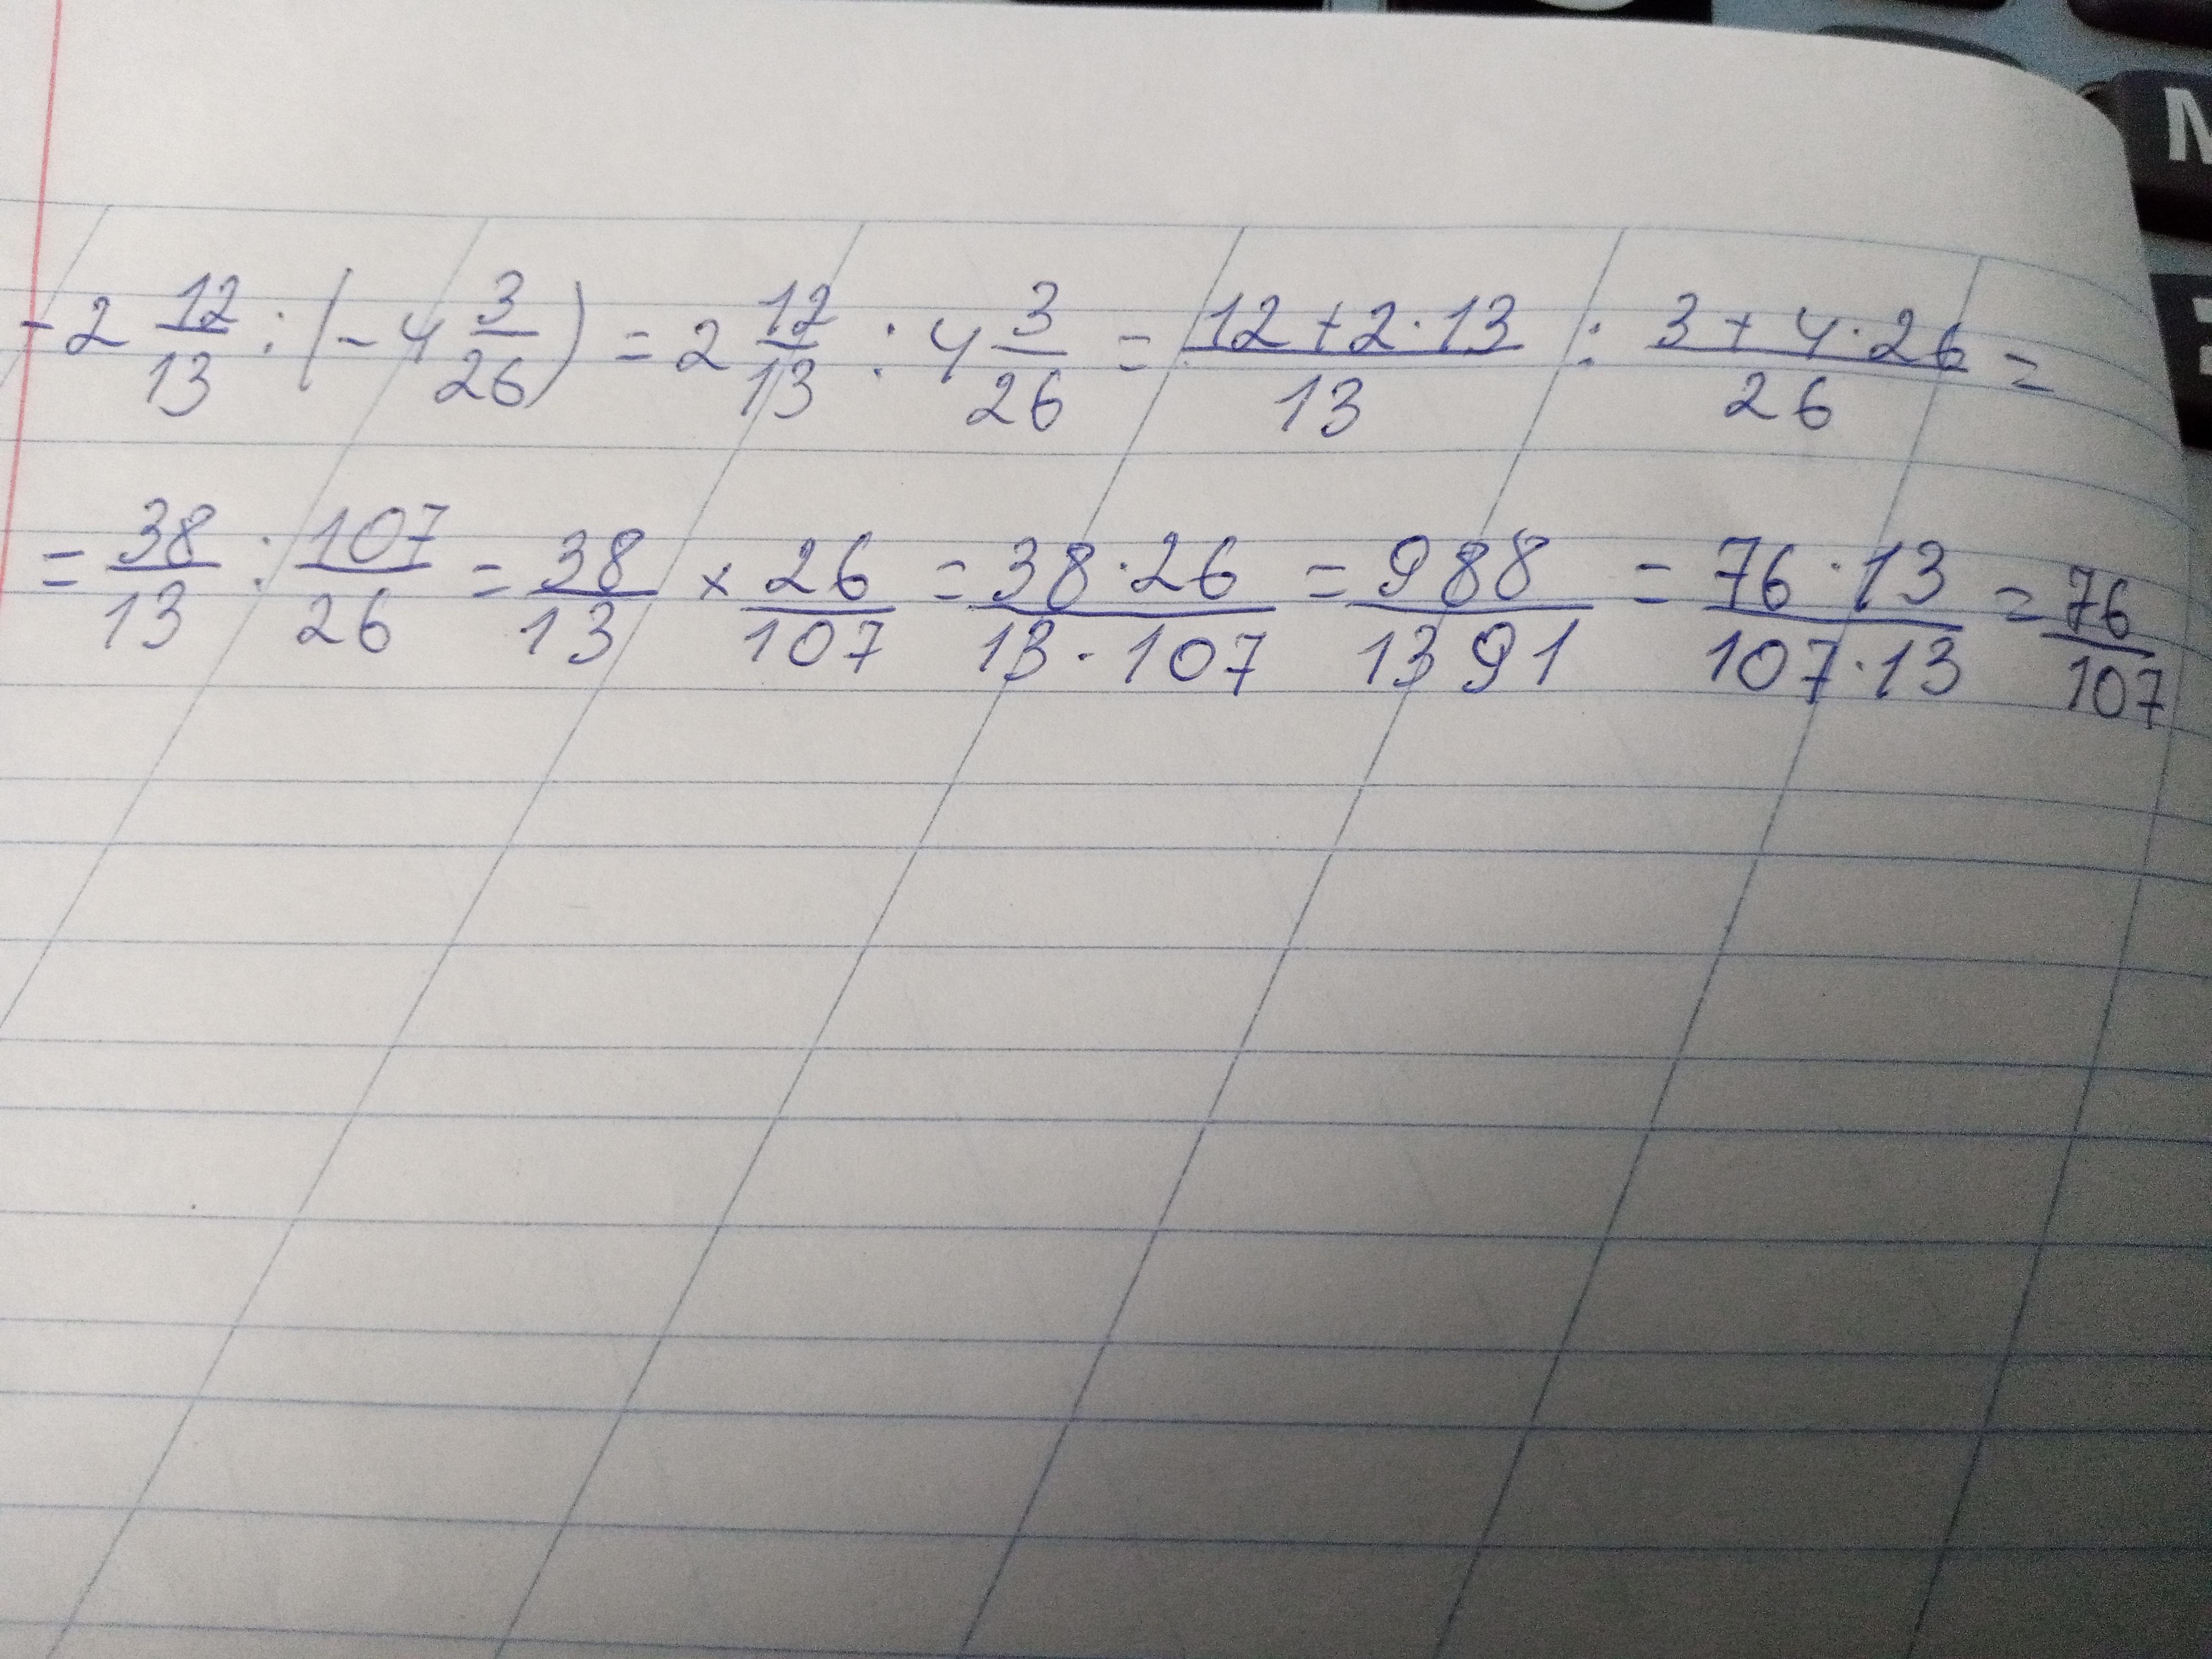 -2 12/13 : (-4 3/26) = 2 12/13 : 4 3/26 = 12+2·13/13 : 3+4·26/26 =
= 38/13 : 107/26 = 38/13 × 26/107 = 38·26/13·107 = 988/1391 = 76·13/107·13 = 76/107